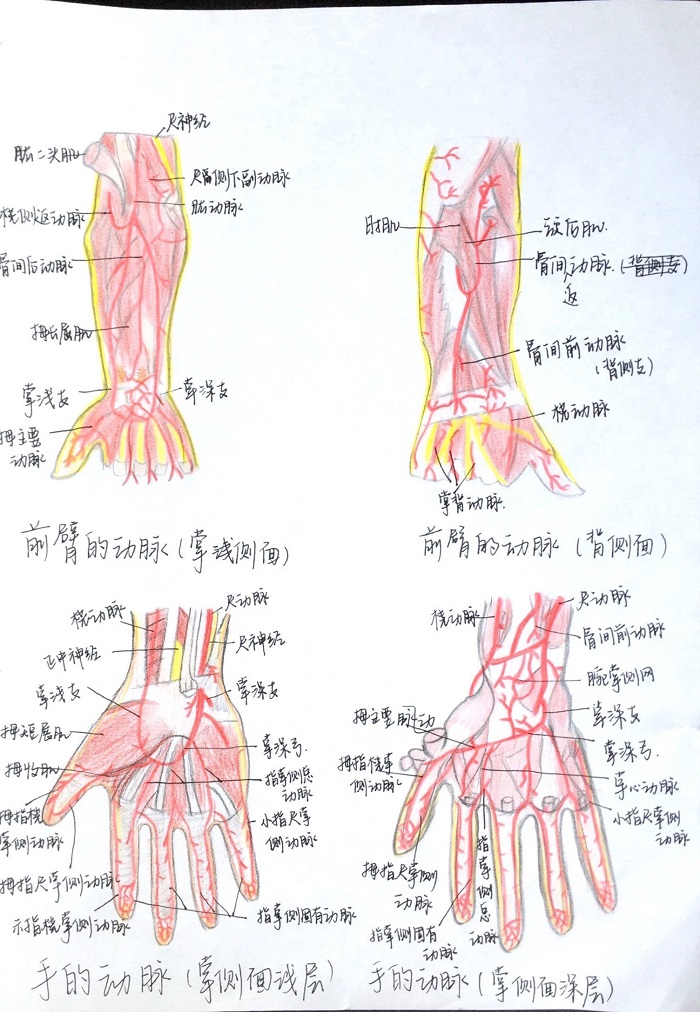 尺神经
肱二头肌
尺侧下副动脉
肱动脉
桡侧返动脉
骨间后动脉
拇长展肌
掌浅支
掌深支
拇主要
动脉
前臂的动脉(掌浅侧面)
肘肌
旋后肌
骨间动脉.(背侧支)
返
骨间前动脉
(背侧支)
桡动脉
掌背动脉.
前臂的动脉(背侧面)
桡动脉
尺动脉
正中神经
尺神经
掌浅支
掌深支
拇短展肌
拇收肌
掌深弓.
指掌侧总
动脉
拇指桡
掌侧动脉
小指尺掌
侧动脉
拇指尺掌侧动脉
示指桡掌侧动脉
指掌侧固有动脉
手的动脉(掌侧面浅层)
桡动脉
尺动脉
骨间前动脉
腕掌侧网
掌深支
拇主要脉动
掌深弓.
拇指桡掌
侧动脉
掌心动脉
小指尺掌侧
动脉
拇指尺掌侧
动脉
指掌侧总动脉
指掌侧固有
动脉
手的动脉(掌侧面深层)